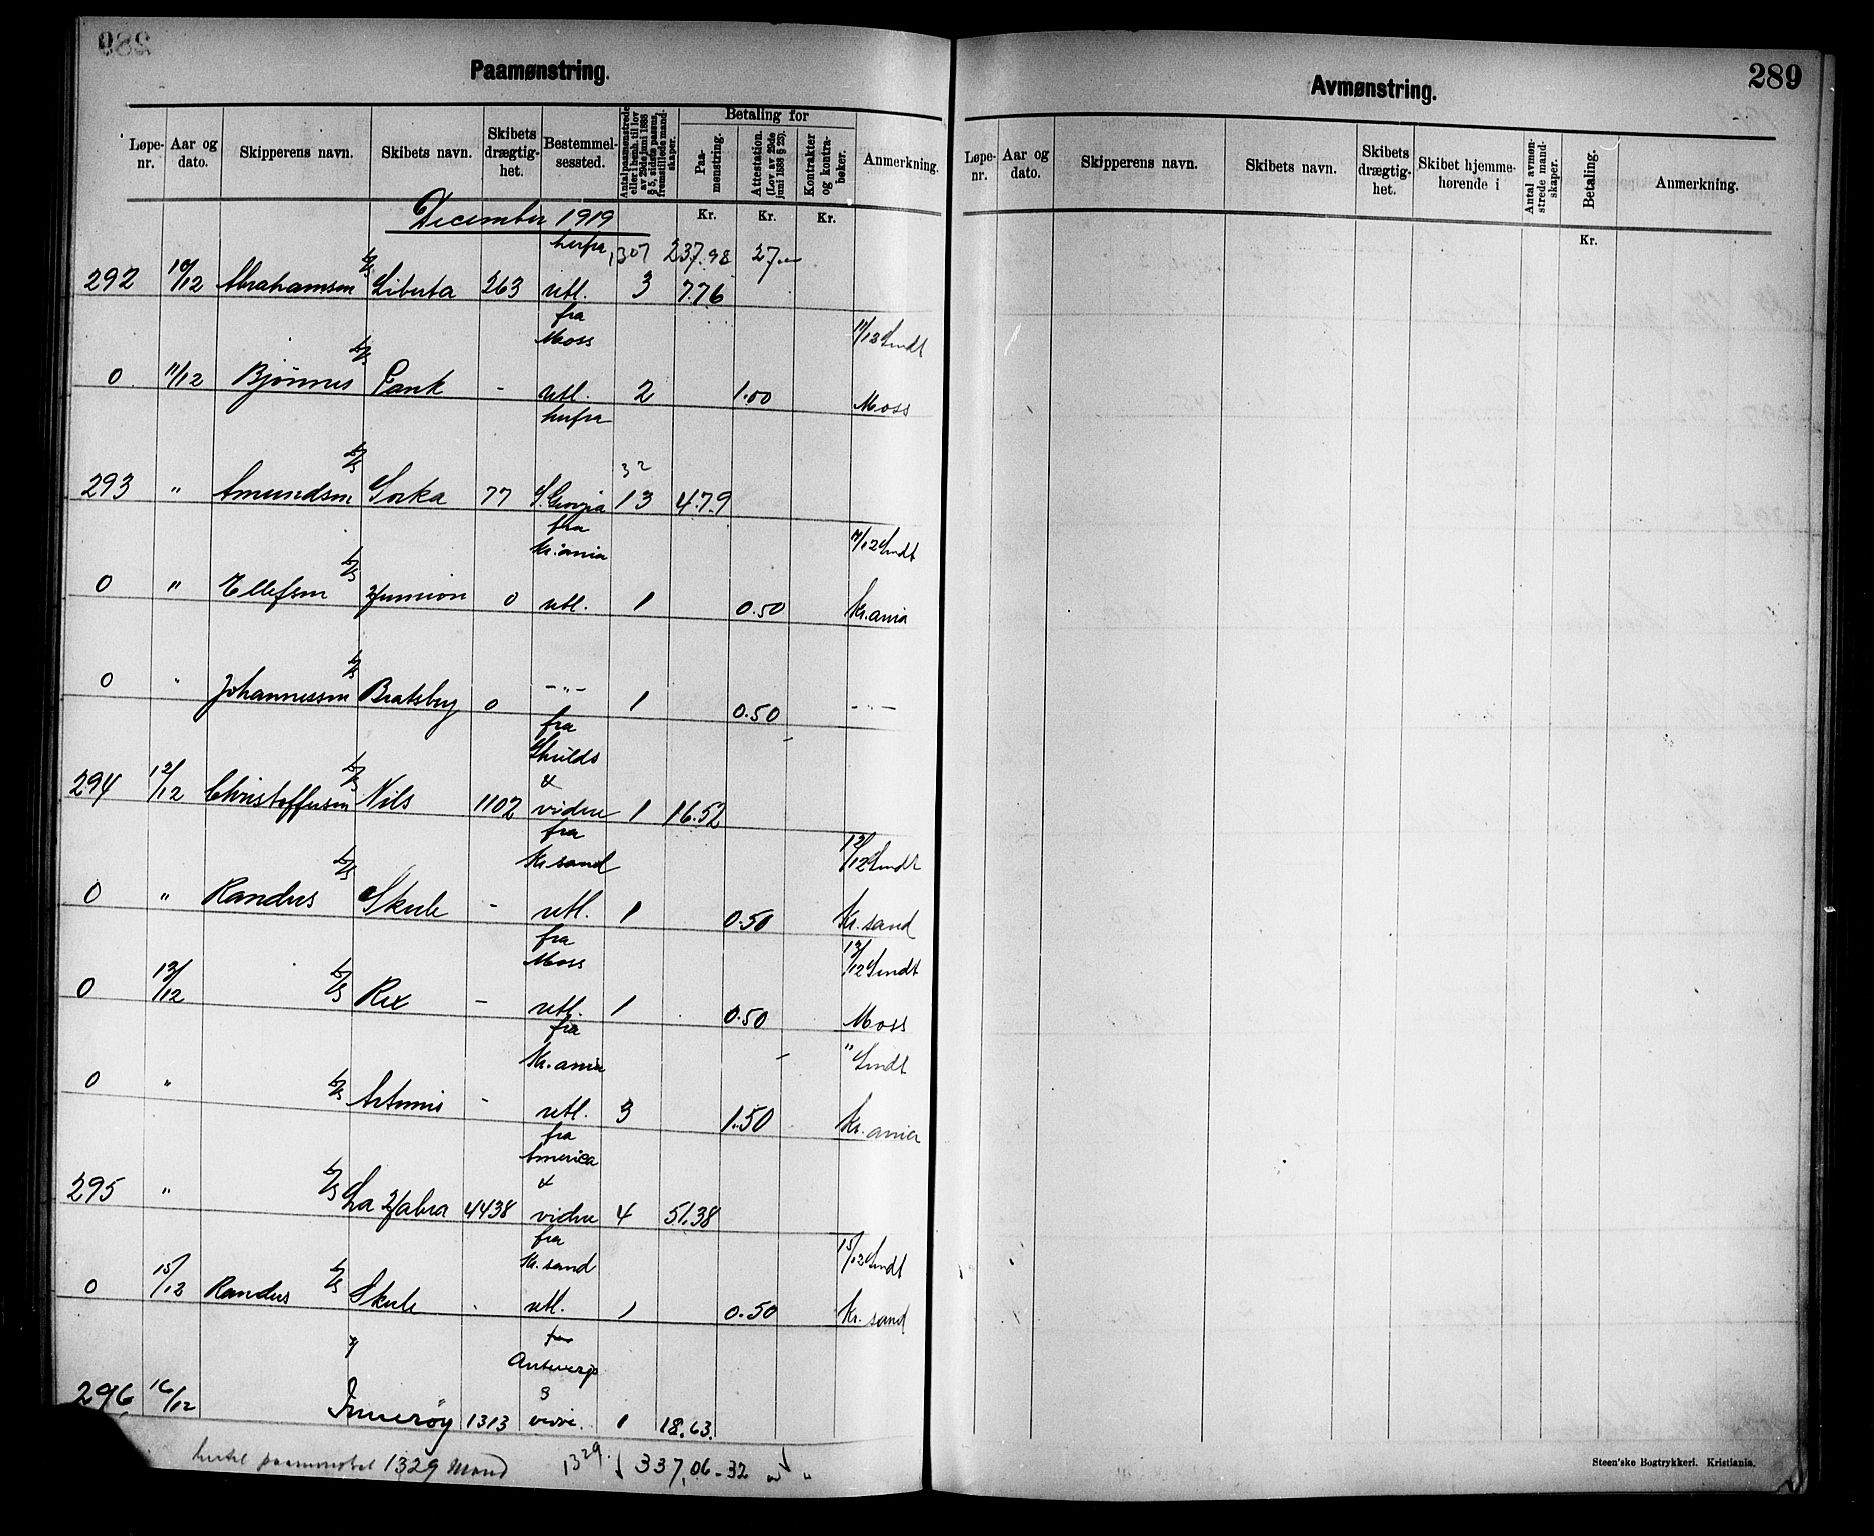 289
Paamønstring.
Løpe-nr. Aar og dato. Skipperens navn. Skibets navn. Skibets drægtig-het. Bestemmel-sessted. Antal paamønstrede eller i henh. til lov av 29de juni 1888 § 5, sidste passus, fremstillede mand-skaper. Betaling for Paa-mønstring. Attestation. (Lov av 29de juni 1888 § 25). Kontrakter og kontra-bøker. Anmerkning.
Kr. Kr. Kr.
December 1919
herfra 1307 237.98 27.
292 10/12 Abrahamsen D/S Liberta 263 utl. 3 7.76
fra
Moss 11/12 Sendt
0 11/12 Bjönnes D/S Pank - utl. 2 1.00 Moss
herfra
32
293 " Amundsen D/S Sorka 77 S. Georgia 13 4.79
fra
Kr.ania 11/12 Sendt
0 " Ellefsen D/S 0 utl. 1 0.50 Kr.ania
0 " Johannessen D/S Bratsberg 0 -"- 1 0.50 -"-
fra
Shields
&
294 12/12 Christoffersen D/S Nils 1102 videre 1 16.52
fra
Kr.sand 12/12 Sendt
0 " Randers D/S Skule - utl. 1 0.50 Kr.sand
fra
Moss 13/12 Sendt
0 13/12 D/S Rex - utl. 1 0.50 Moss
fra
Kr.ania " Sendt
0 " D/S Artemis - utl. 3 1.50 Kr.ania
fra
America
&
295 " D/S La Habra 4438 videre 4 51.38
fra
Kr.sand 15/12 Sendt
0 15/12 Randers D/S Skule - utl. 1 0.50 Kr.sand
fra
Antwerp
&
296 16/12 Inverøy 1313 vidre. 1 18.63.
hertil paamönstret 1329 Mand 1329 337,06 - 32
289
Avmønstring.
Løpe-nr. Aar og dato. Skipperens navn. Skibets navn. Skibets drægtig-het. Skibet hjemme-hørende i Antal avmøn-strede mand-skaper. Betaling. Anmerkning.
Kr.
Steen'ske Bogtrykkeri. Kristiania.